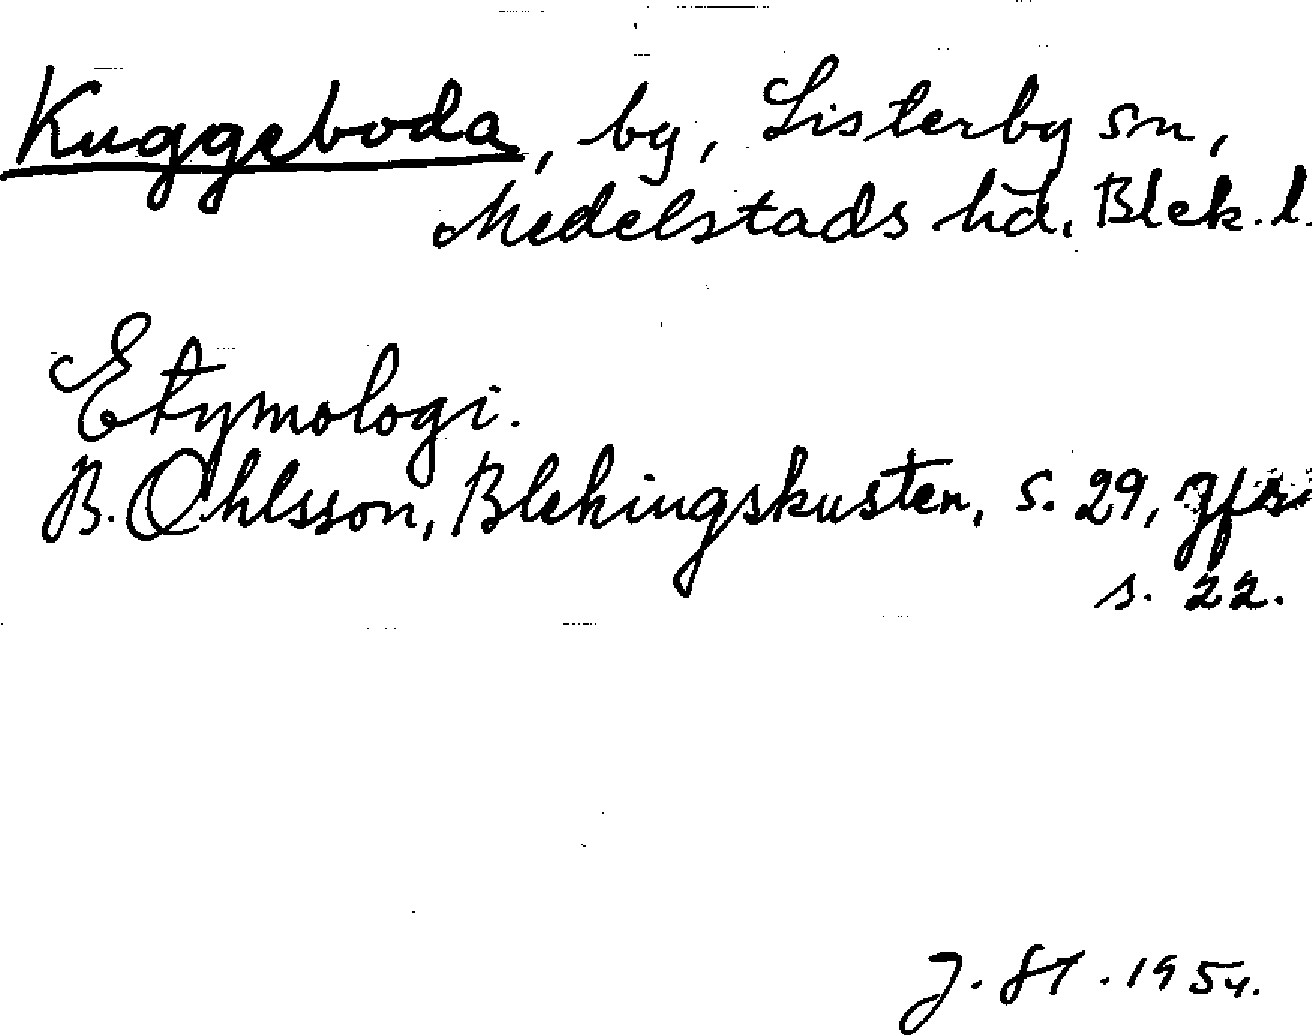 Kuggeboda, by, Listerby sn,
Medelstads hd. Blek. l.
Etymologi.
B. Ohlsson, Blekingskusten, s. 29, jfr
s. 22.
J. St. 1954.